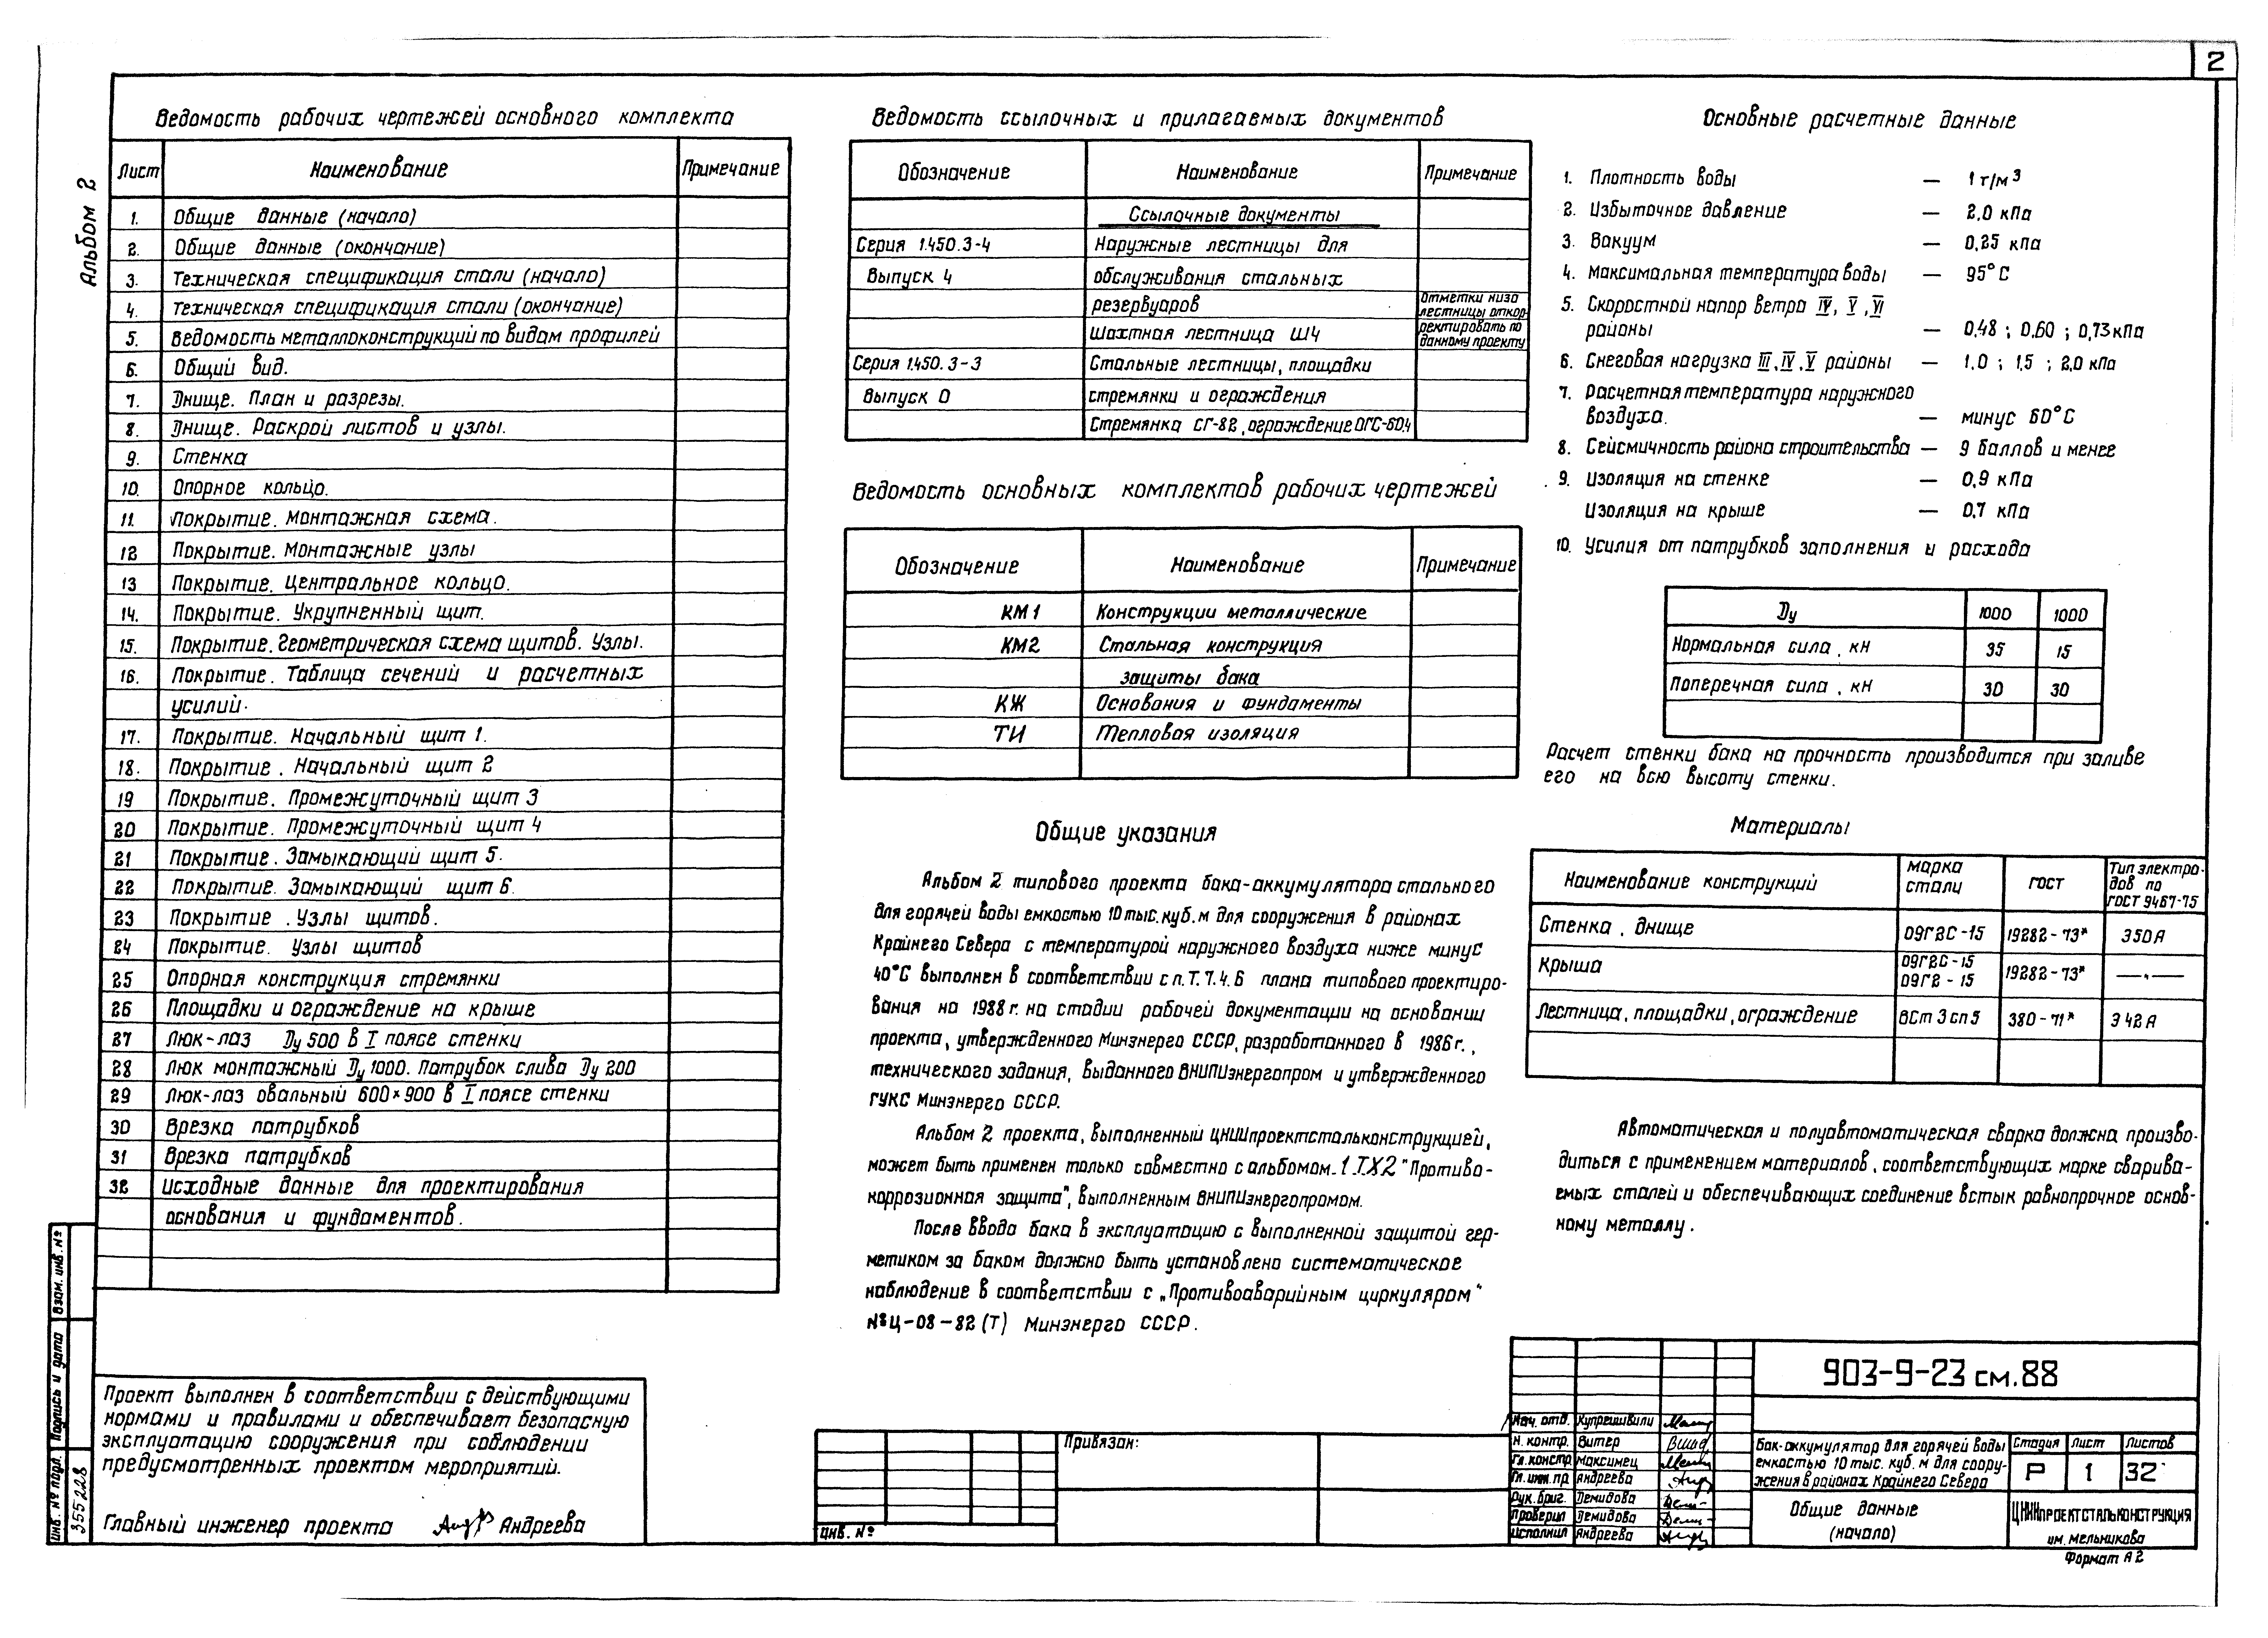 2
Альбом 2
Ведомость рабочих чертежей основного комплекта
Лист Наименование Примечание
1. Общие данные (начало)
2. Общие данные (окончание)
3. Техническая спецификация стали (начало)
4. Техническая спецификация стали (окончание)
5. Ведомость металлоконструкций по видам профилей
6. Общий вид.
7. Днище. План и разрезы.
8. Днище. Раскрой листов и узлы.
9. Стенка
10. Опорное кольцо.
11. Покрытие. Монтажная схема.
12 Покрытие. Монтажные узлы
13 Покрытие. Центральное кольцо.
14. Покрытие. Укрупненный щит.
15. Покрытие. Геометрическая схема щитов. Узлы.
16. Покрытие. Таблица сечений и расчетных
усилий.
17. Покрытие. Начальный щит 1.
18. Покрытие. Начальный щит 2
19 Покрытие. Промежуточный щит 3
20 Покрытие. Промежуточный щит 4
21 Покрытие. Замыкающий щит 5.
22 Покрытие. Замыкающий щит 6.
23 Покрытие. Узлы щитов.
24 Покрытие. Узлы щитов
25 Опорная конструкция стремянки
26 Площадки и ограждение на крыше
27 Люк-лаз Ду 500 в I поясе стенки
28 Люк монтажный Ду 1000. Патрубок слива Ду 200
29 Люк-лаз овальный 600×900 в I поясе стенки
30 Врезка патрубков
31 Врезка патрубков
32 Исходные данные для проектирования
основания и фундаментов.
Проект выполнен в соответствии с действующими
нормами и правилами и обеспечивает безопасную
эксплуатацию сооружения при соблюдении
предусмотренных проектом мероприятий.
Главный инженер проекта Андреева
Взам. инв. №
Подпись и дата
Инв. № подл.
355228
Ведомость ссылочных и прилагаемых документов
Обозначение Наименование Примечание
Ссылочные документы
Серия 1.450.3-4 Наружные лестницы для
Выпуск 4 обслуживания стальных
резервуаров Отметки низа
лестницы откор-
Шахтная лестница Ш4 ректировать по
данному проекту
Серия 1.450.3-3 Стальные лестницы, площадки
Выпуск 0 стремянки и ограждения
Стремянка СГ-82, ограждение ОГС-60.4
Ведомость основных комплектов рабочих чертежей
Обозначение Наименование Примечание
КМ1 Конструкции металлические
КМ2 Стальная конструкция
защиты бака
КЖ Основания и фундаменты
ТИ Тепловая изоляция
Общие указания
Альбом 2 типового проекта бака-аккумулятора стального
для горячей воды емкостью 10 тыс. куб. м для сооружения в районах
Крайнего Севера с температурой наружного воздуха ниже минус
40°С выполнен в соответствии с п. Т. 7. 4. 6 плана типового проектиро-
вания на 1988 г. на стадии рабочей документации на основании
проекта, утвержденного Минэнерго СССР, разработанного в 1986 г.,
технического задания, выданного ВНИПИэнергопром и утвержденного
ГУКС Минэнерго СССР.
Альбом 2 проекта, выполненный ЦНИИпроектстальконструкцией,
может быть применен только совместно с альбомом 1 ТХ2 "Противо-
коррозионная защита", выполненным ВНИПИэнергопромом.
После ввода бака в эксплуатацию с выполненной защитой гер-
метиком за баком должно быть установлено систематическое
наблюдение в соответствии с „Противоаварийным циркуляром"
№Ц-08-82 (Т) Минэнерго СССР.
Привязан:
Инв. №
Основные расчетные данные
1. Плотность воды — 1 т/м³
2. Избыточное давление — 2,0 кПа
3. Вакуум — 0,25 кПа
4. Максимальная температура воды — 95°С
5. Скоростной напор ветра IV, V, VI
районы — 0,48 ; 0,60 ; 0,73 кПа
6. Снеговая нагрузка III, IV, V районы — 1,0 ; 1,5 ; 2,0 кПа
7. Расчетная температура наружного
воздуха. — минус 60°С
8. Сейсмичность района строительства — 9 баллов и менее
9. Изоляция на стенке — 0,9 кПа
Изоляция на крыше — 0,7 кПа
10. Усилия от патрубков заполнения и расхода
Ду 1000 1000
Нормальная сила, кН 35 15
Поперечная сила, кН 30 30
Расчет стенки бака на прочность производится при заливе
его на всю высоту стенки.
Материалы
Наименование конструкций Марка стали ГОСТ Тип электро-
дов по
ГОСТ 9467-75
Стенка, днище 09Г2С-15 19282-73* Э50А
Крыша 09Г2С-15
09Г2-15 19282-73* —"—
Лестница, площадки, ограждение ВСт 3 сп 5 380-71* Э42А
Автоматическая и полуавтоматическая сварка должна произво-
диться с применением материалов, соответствующих марке сварива-
емых сталей и обеспечивающих соединение встык равнопрочное основ-
ному металлу.
903-9-23 см.88
Нач. отд. Купреишвили
Н. контр. Витер
Гл. констр. Максимец
Гл. инж. пр. Андреева
Рук. бриг. Демидова
Проверил Демидова
Исполнил Андреева
Бак-аккумулятор для горячей воды
емкостью 10 тыс. куб. м для соору-
жения в районах Крайнего Севера
Стадия Лист Листов
Р 1 32
Общие данные
(начало)
ЦНИИПРОЕКТСТАЛЬКОНСТРУКЦИЯ
им. Мельникова
Формат А2